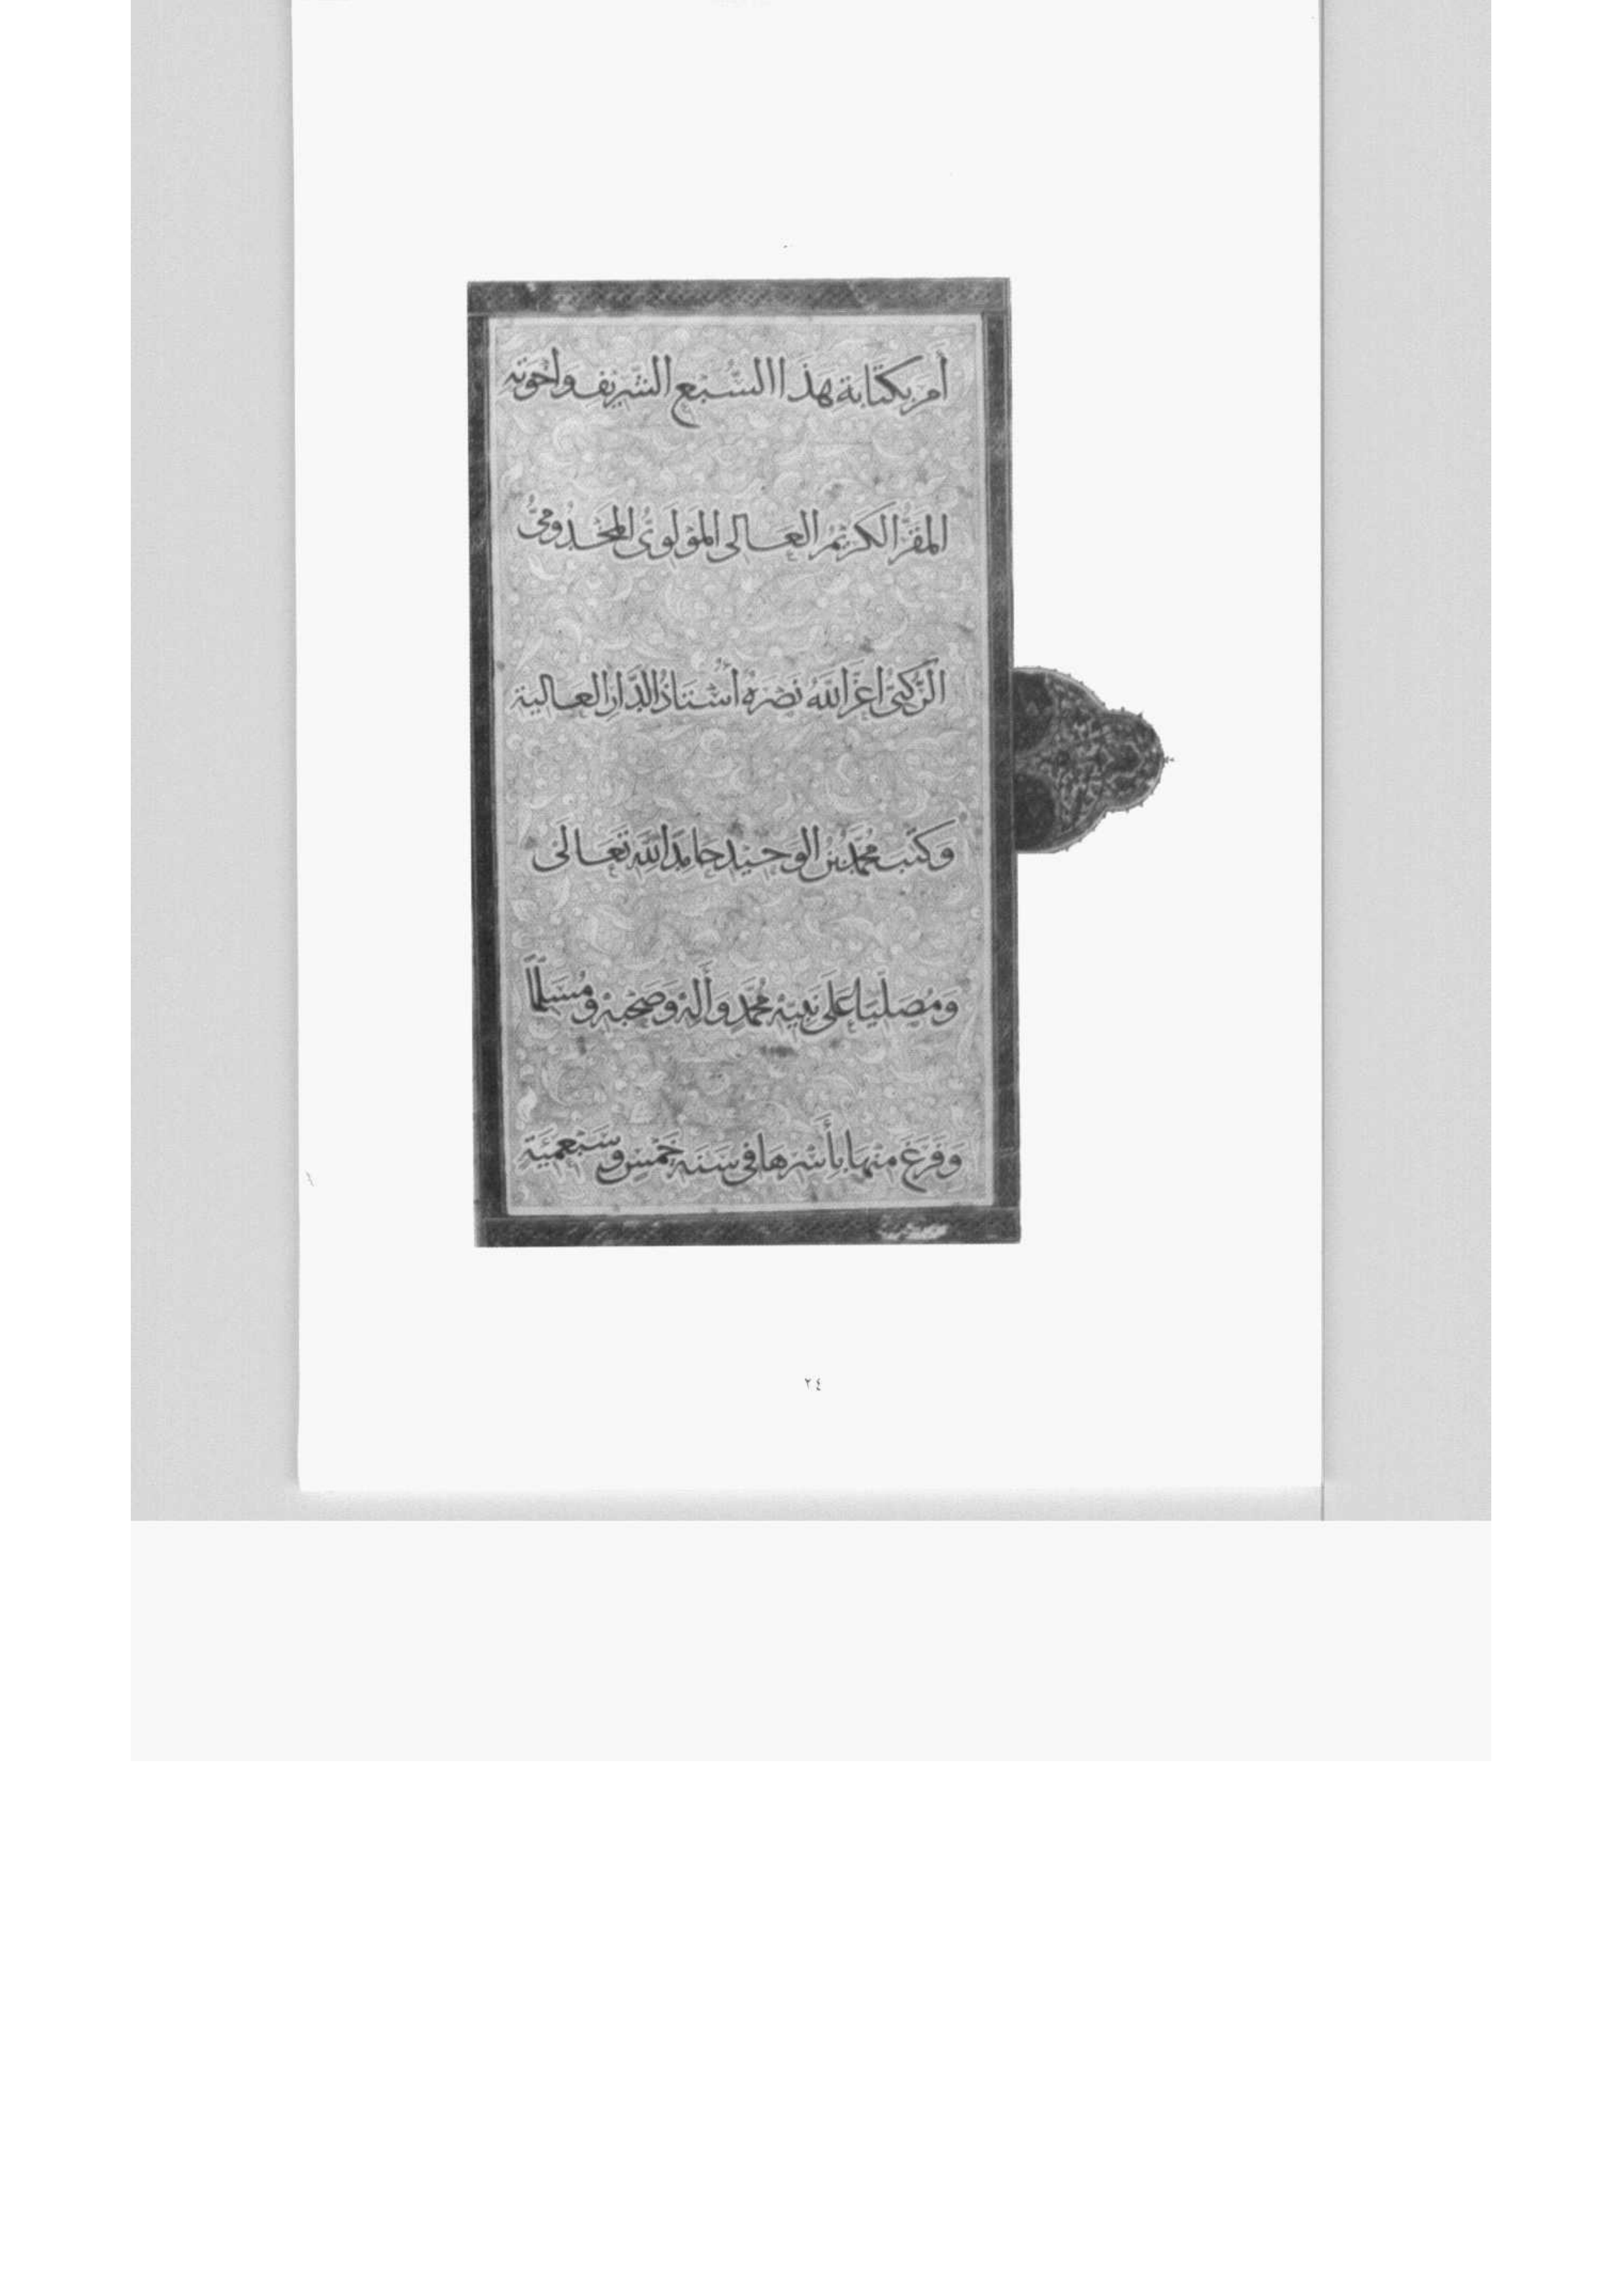 أَمَرَ بِكِتَابَة هَذَا السُّبع الشَّرِيف وَاخْوَته
المَقَرُّ الكَرِيْمُ العَالى المَوْلَوىُّ المَخْدُومىُّ
الرُّكنىُّ اعَزَّ اللَّهُ نَصْرَهُ أُسْتَاذُ الدَّارِ العَالية
وَكَتَبَ مُحَمَّدُ بْنُ الوَحِيْد حَامِدَاً للَّه تَعَالَى
وَمُصَلّيَاً عَلَى نَبِيّه مُحَمَّدٍ وَأَلهِ وَصَحْبهِ وَمُسَلِّمَاً
وَفَرَغَ مِنْهَا بِأَسْرِهَا فى سَنَة خَمْسٍ وَسَبْعِمِئَة
٢٤